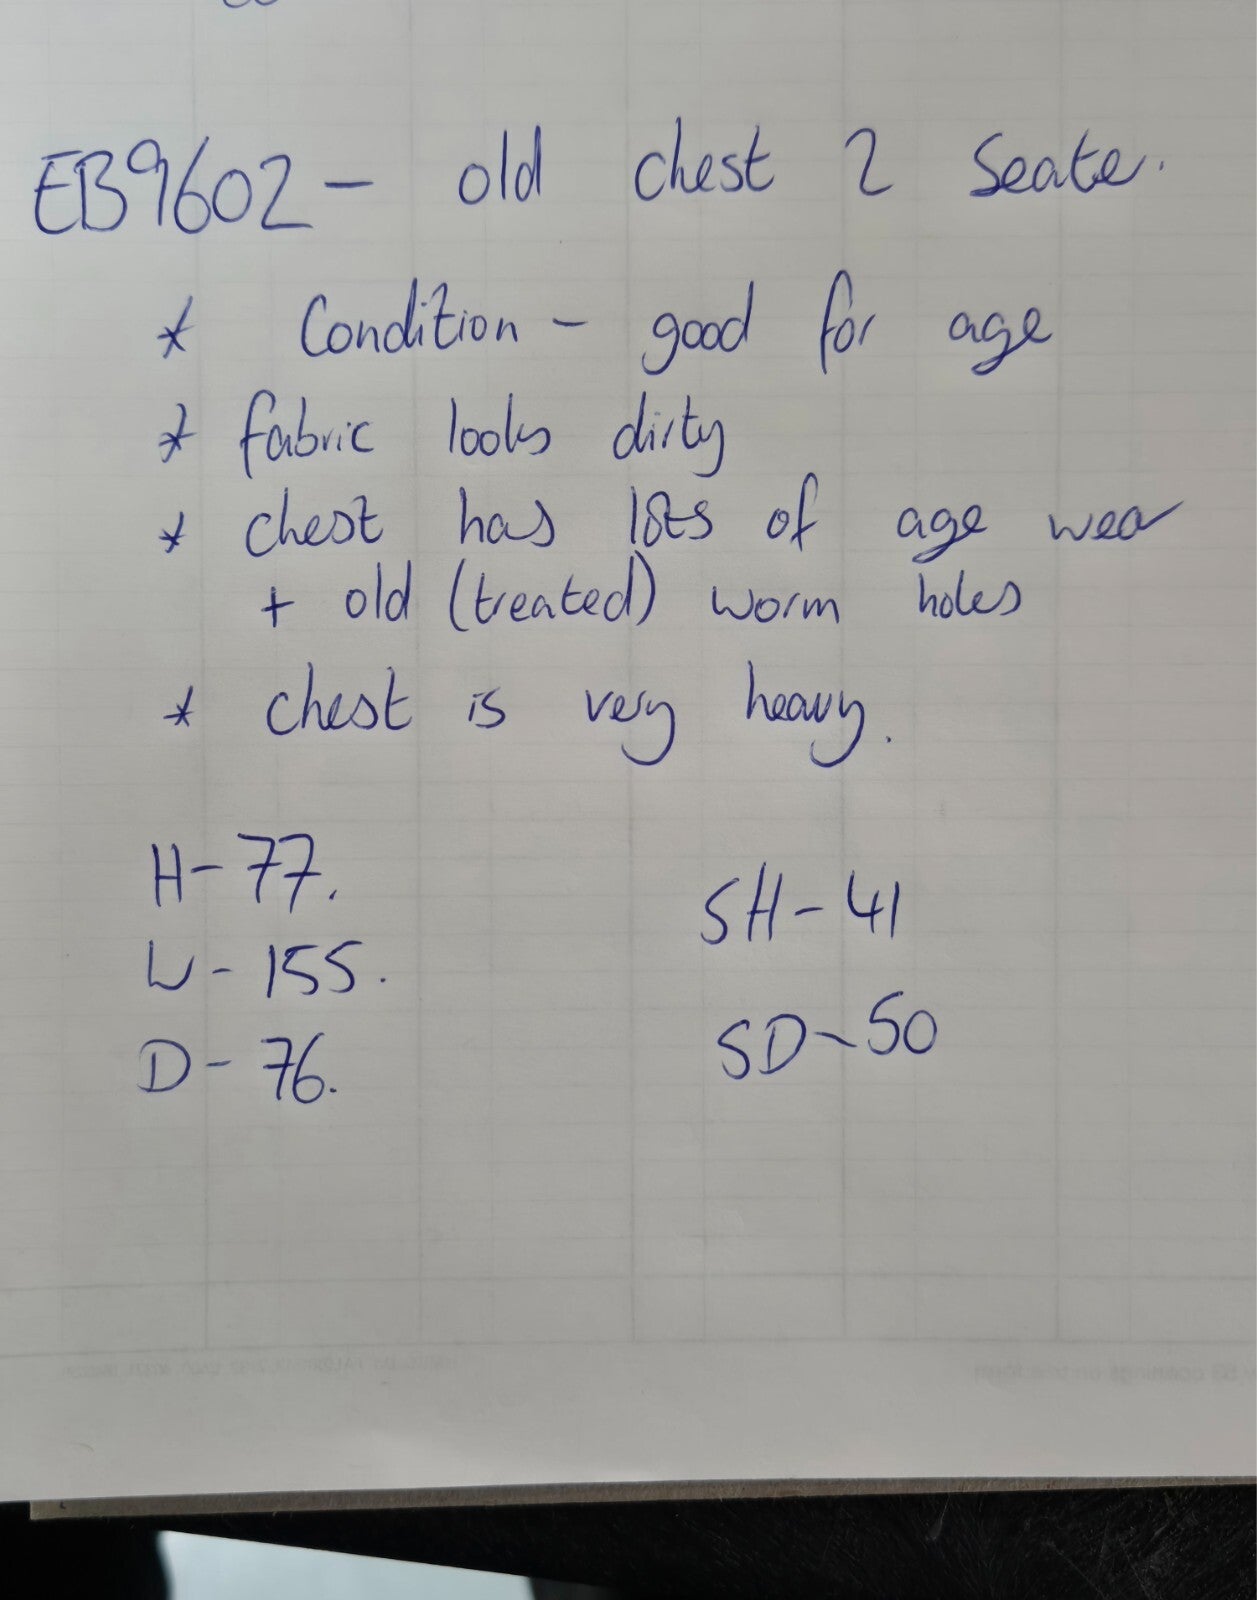 EB9602 - old chest 2 Seater.
* Condition - good for age
* fabric looks dirty
* chest has lots of age wear
+ old (treated) worm holes
* chest is very heavy.
H - 77.
W - 155.
D - 76.
SH - 41
SD - 50